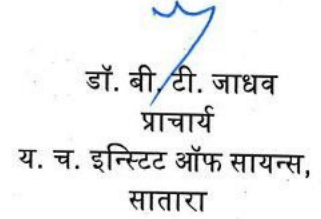 डॉ. बी. टी. जाधव
प्राचार्य
य. च. इन्स्टिट ऑफ सायन्स,
सातारा